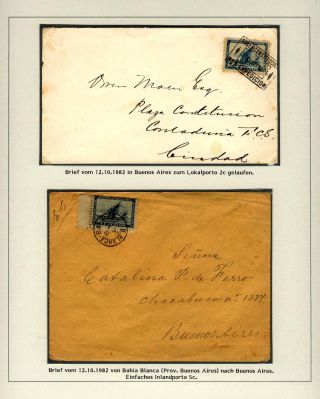 Owen Moen Esq.
Plaza Constitucion
Contaduria F.C.S.
Ciudad
Brief vom 12.10.1982 in Buenos Aires zum Lokalporto 2c gelaufen.
BLANCA
Señora
Catalina P. de Ferro
Chacabuco nº 1337
Buenos Aires
Brief vom 12.10.1982 von Bahia Blanca (Prov. Buenos Aires) nach Buenos Aires.
Einfaches Inlandporto 5c.